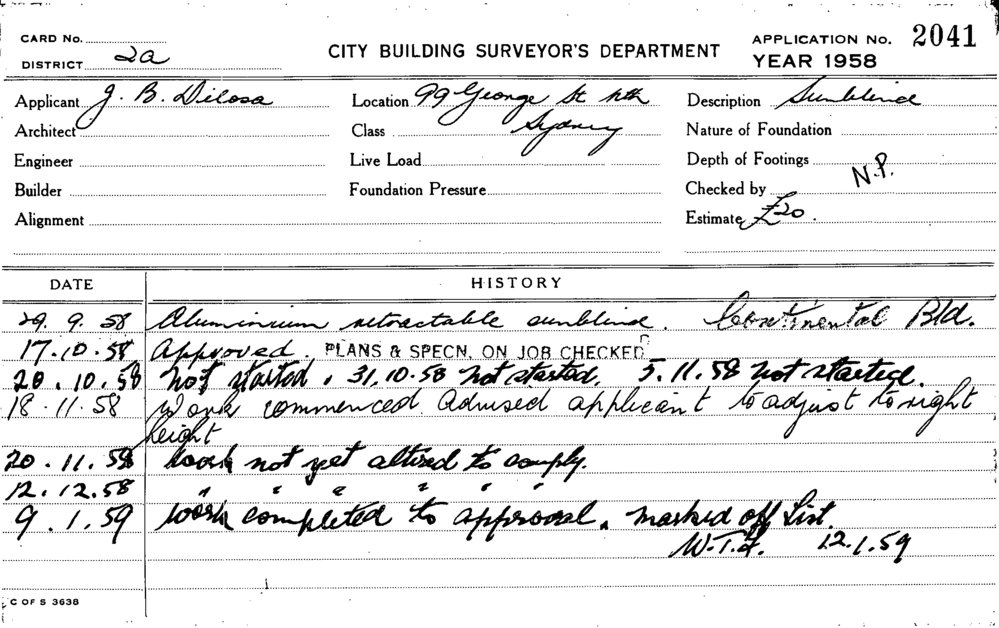 CARD No.
DISTRICT 2a
CITY BUILDING SURVEYOR'S DEPARTMENT
APPLICATION No. 2041
YEAR 1958
Applicant J. B. Dilosa Location 99 George St Nth Description Sunblind
Architect Class Sydney Nature of Foundation
Engineer Live Load Depth of Footings
Builder Foundation Pressure Checked by N.P.
Alignment Estimate £20.
DATE HISTORY
29.9.58 Aluminium retractable sunblind. Continental Bld.
17.10.58 Approved. PLANS & SPECN. ON JOB CHECKED
20.10.58 not started, 31.10.58 not started. 5.11.58 not started.
18.11.58 Work commenced. Advised applicant to adjust to right
height
20.11.58 Work not yet altired to comply.
12.12.58 " " " " " "
9.1.59 Work completed to approval. Marked off List.
W.T.F. 12.1.59
C OF S 3638